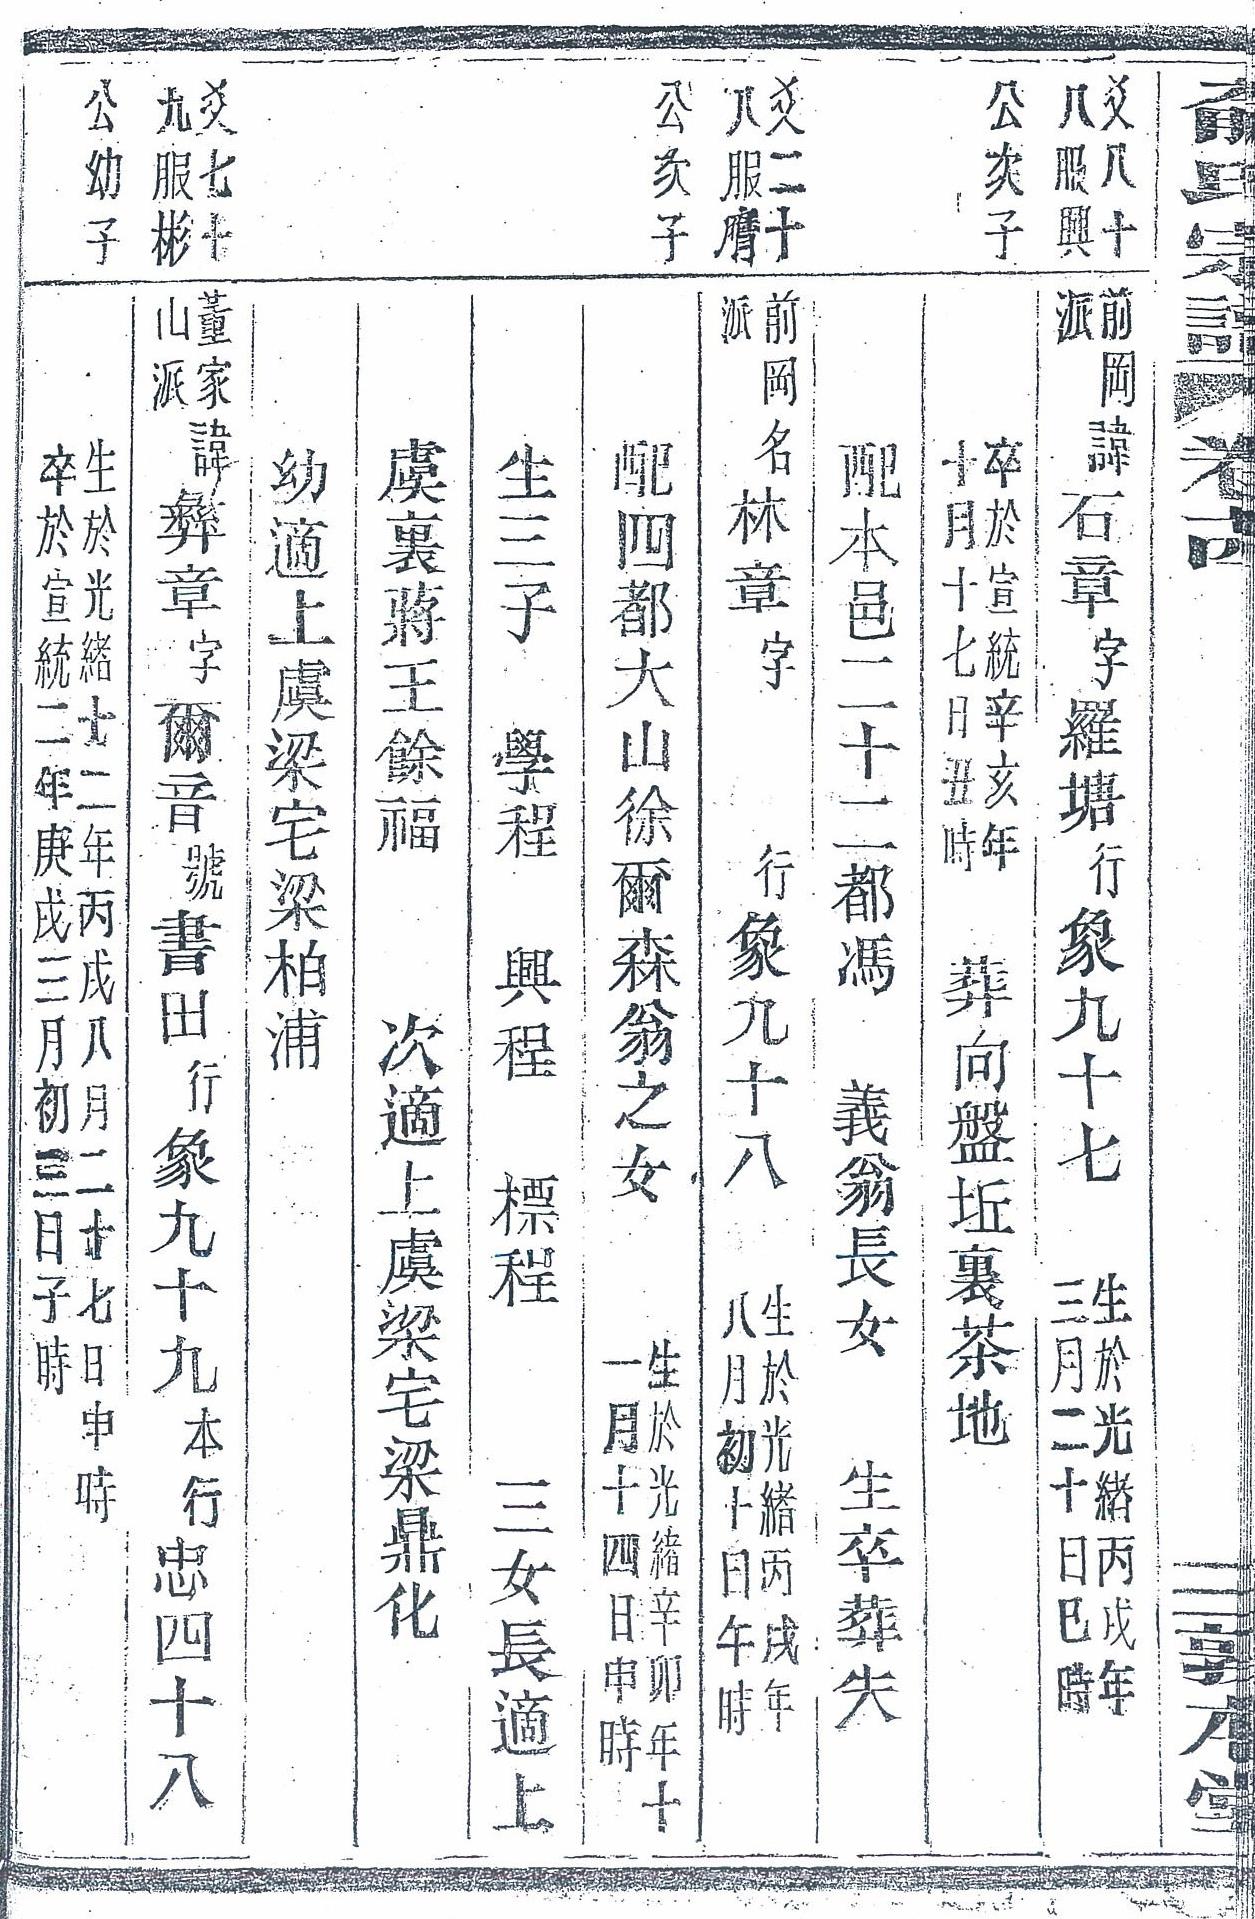 俞氏宗譜 卷
敦本堂
爻八十
八服興
公次子
前岡
派
諱石章字羅塘行象九十七
生於光緒丙戌年
三月二十日巳時
卒於宣統辛亥年
十月十七日丑時
葬向盤坵裏茶地
配本邑二十二都馮 義翁長女 生卒葬失
爻二十
八服膺
公次子
前岡
派
名林章字 行象九十八
生於光緒丙戌年
八月初十日午時
配四都大山徐爾森翁之女
生於光緒辛卯年十
一月十四日申時
生三子 學程 興程 標程 三女長適上
虞裏蔣王餘福 次適上虞梁宅梁鼎化
幼適上虞梁宅梁柏浦
爻七十
九服彬
公幼子
董家
山派
諱彝章字爾音號書田行象九十九本行忠四十八
生於光緒十二年丙戌八月二十七日申時
卒於宣統二年庚戌三月初三日子時